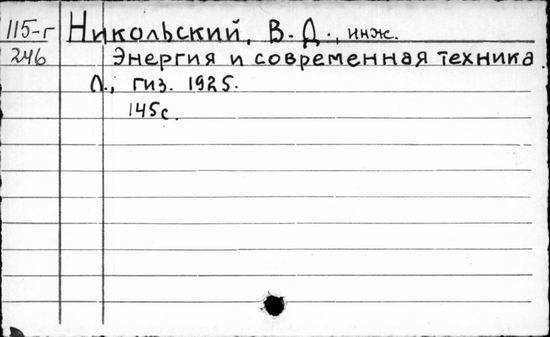 115-г Никольский, В. Д., инж.
246 Энергия и современная техника.
Л., гиз. 1925.
145с.